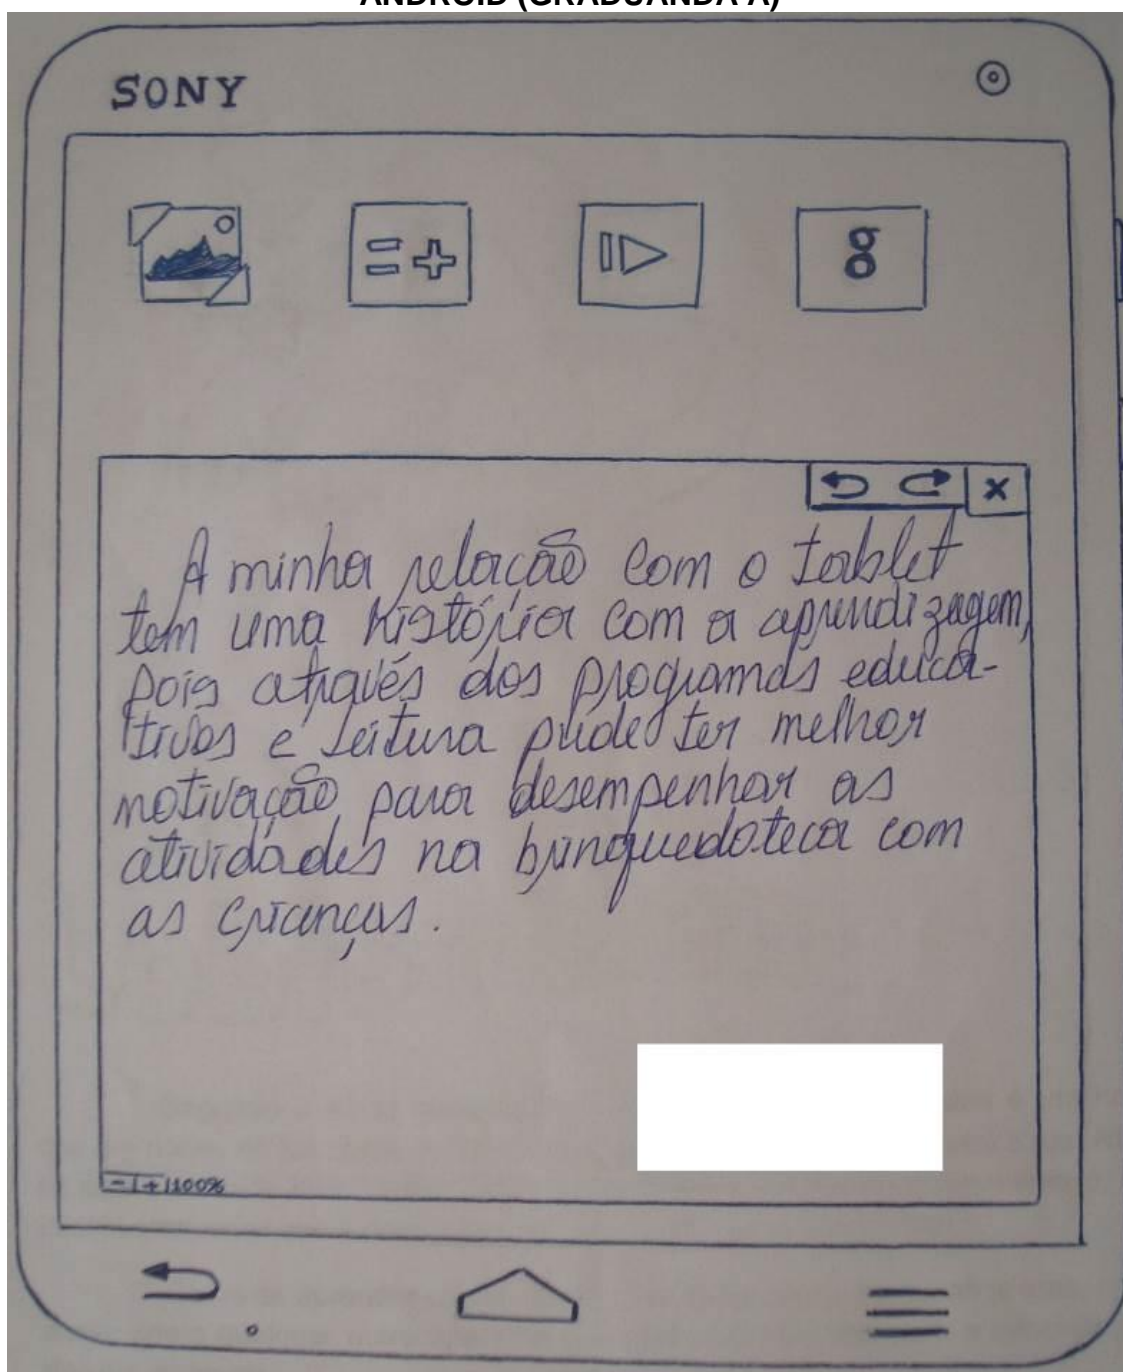 ANDROID (GRADUANDA A)
SONY
=+
g
x
A minha relação com o tablet
tem uma história com a aprendizagem,
pois através dos programas educa-
tivos e leitura pude ter melhor
motivação para desempenhar as
atividades na brinquedoteca com
as crianças.
-|+|100%